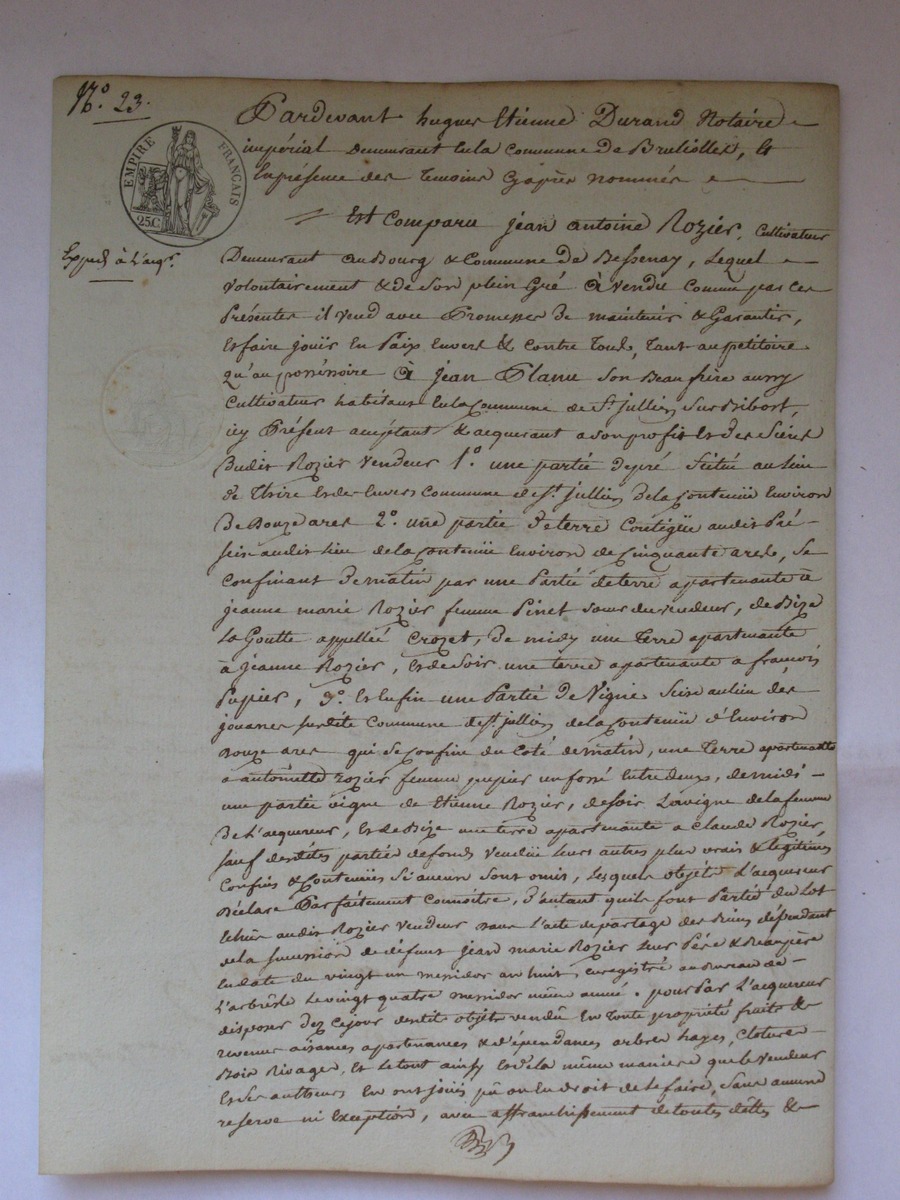 N.º 23.
EMPIRE FRANÇAIS
25C
Expedié à l'acqr.
Pardevant hugues Etienne Durand Notaire
impérial demeurant en la Commune de Brullioles, Et
En présence des temoins cy après nommés
Est Comparu jean antoine Rozier, cultivateur
Demeurant au Bourg & Commune de Bessenay, Lequel
volontairement & de son plein Gré à vendu comme par ces
Présentes il vend avec Promesses de maintenir & Garantir,
Et faire jouir En Paix Envers & Contre Tous, Tant au petitoire
qu'au possessoire à jean Planu son Beau frère aussy
Cultivateur habitant En la Commune de St. jullien sur Bibost,
icy Présent acceptant & acquerant a son profit Et des Siens
Dudit Rozier vendeur 1º. une partie de pré Scitué au lieu
de Et des Envers Commune de St. jullien de la Contenüe Environ
De Douze ares 2º. une partie de terre Contigüe au dit Pré
Sis au dit lieu de la Contenüe Environ de Cinquante ares, Se
Confinant De matin par une Partie de terre apartenante à
jeanne marie Rozier femme Pinet sœur du vendeur, de Bize
La Goutte appellée Crozet, De midy une Terre apartenante
à jeanne Rozier, Et de Soir une terre apartenante a françois
Pupier, 3º. Et Enfin une Partie De Vigne Sise au lieu des
jouanes susdite Commune de St. jullien de la Contenüe d'Environ
Douze ares qui se Confine du Coté de matin, une Terre apartenante
a antoinette Rozier femme pupier un fossé Entre deux, de midi
une partie vigne de Etienne Rozier, de soir La vigne de la femme
De L'acquereur, Et de Bize une terre apartenante a Claude Rozier,
sauf desdites parties de fonds vendüe leurs autres plus vrais & legitimes
Confins & Contenües Si aucun sont omis, Lesquels objets L'acquereur
Déclare Parfaitement Connoitre, d'autant qu'ils font Partie du Lot
Echüe au dit Rozier vendeur dans L'acte de partage des Biens dépendant
de la succession de défunt jean marie Rozier leur Père & Beaupère
En date du vingt un messidor an huit, enregistré au Bureau de
L'arbresle Le vingt quatre messidor même année. pour Par L'acquereur
disposer Dez Ce jour desdits objets vendüs En Toute propriété fruits &
revenus aisances apartenances & dépendances arbres hayes, Cloture
Bois Rivages, Et le tout ainsy Et de la même maniere que le vendeur
Et ses autheurs En ont joüis pû ou Eu droit de le faire, Sans aucune
reserve ni Exception, avec affranchissement de toutes dettes &